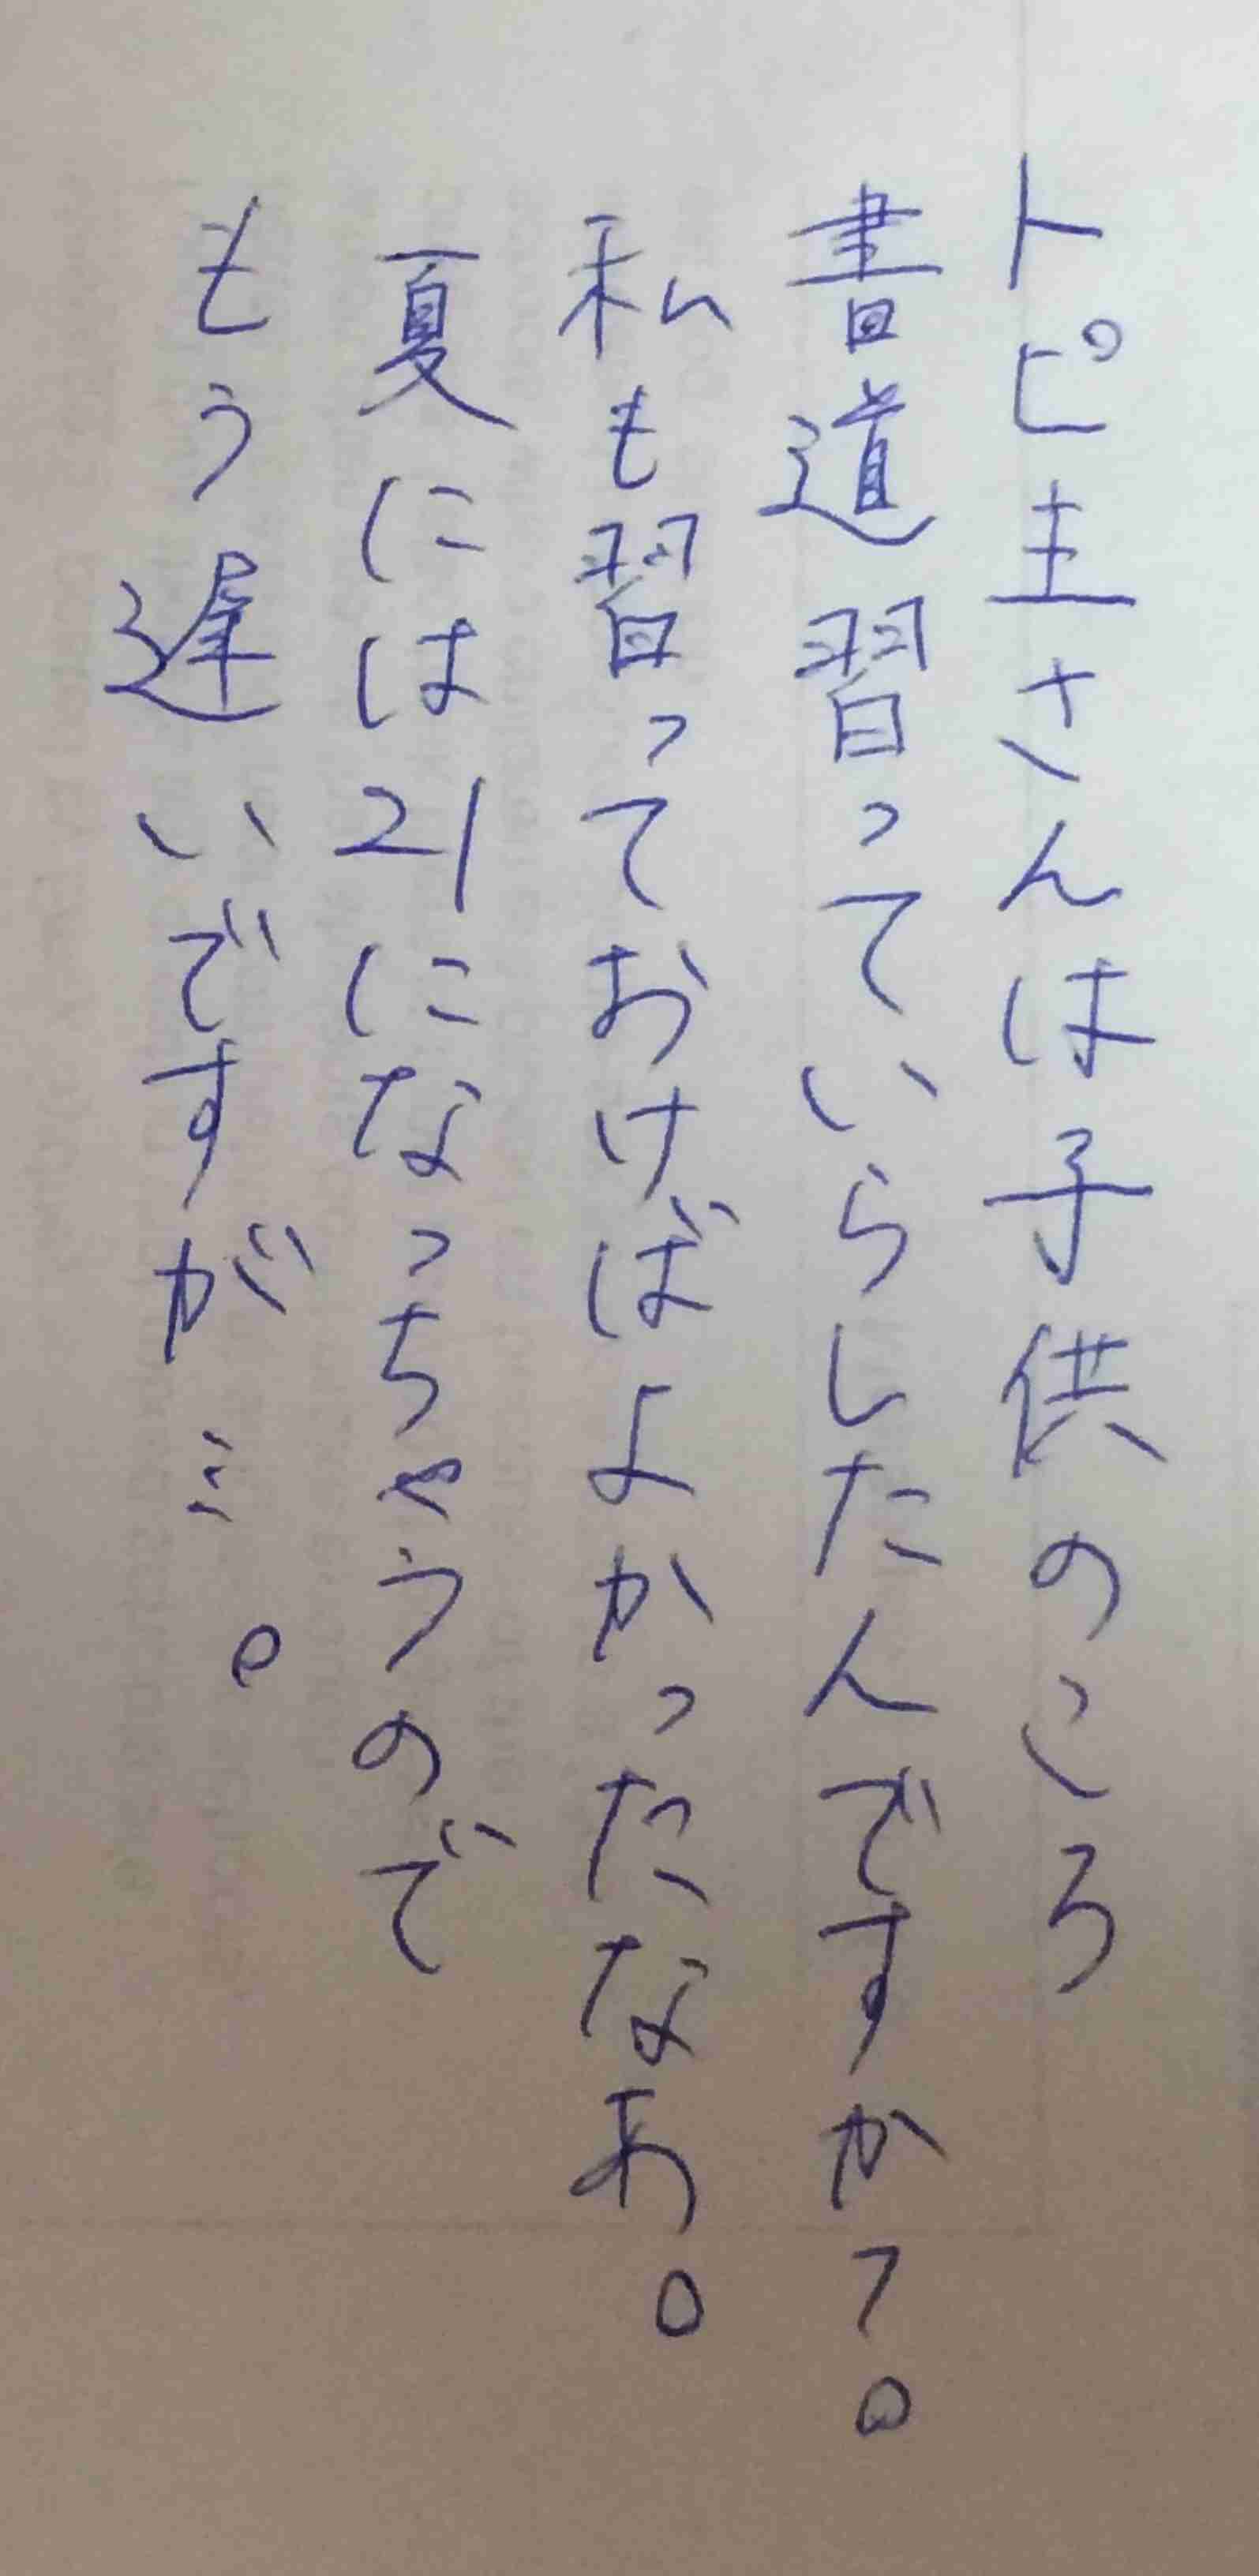 トピ主さんは子供のころ
書道習っていらしたんですか?。
私も習っておけばよかったなあ。
夏には21になっちゃうので
もう遅いですが…。